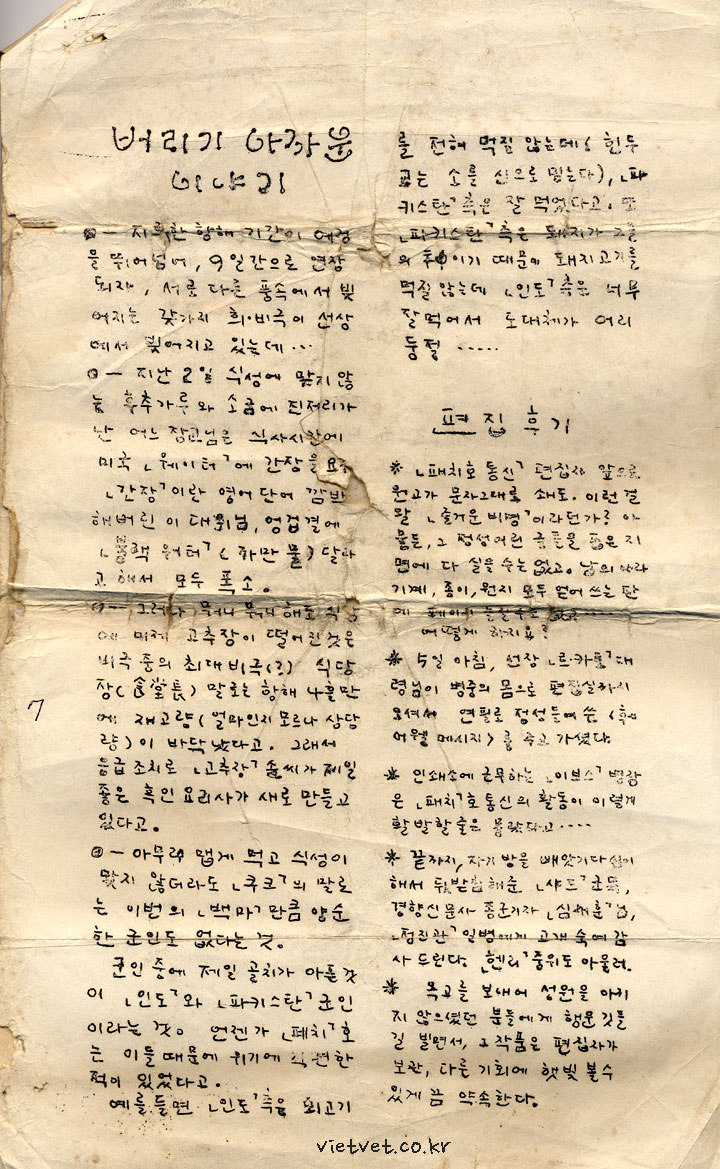 버리기 아까운
이야기
◎- 지루한 항해 기간이 예정
을 뛰어넘어, 9일간으로 연장
되자, 서로 다른 풍속에서 빚
어지는 갖가지 희·비극이 선상
에서 빚어지고 있는데···
◎- 지난 2일 식성에 맞지 않
는 후추가루와 소금에 진저리가
난 어느 장교님은 식사시간에
미국 「웨이터」에 간장을 요구
「간장」이란 영어 단어 깜박
해버린 이 대위님, 엉겁결에
「블랙 워터」(까만 물) 달라
고 해서 모두 폭소.
◎- 그러나 뭐니 뭐니 해도 식당
에 이제 고추장이 떨어진 것은
비극 중의 최대 비극(?) 식당
장(食堂長) 말로는 항해 4흘만
에 재고량(얼마인지 모르나 상당
량)이 바닥났다고. 그래서
응급 조치로 「고추장」 솜씨가 제일
좋은 흑인 요리사가 새로 만들고
있다고.
◎- 아무리 맵게 먹고 식성이
맞지 않더라도 「쿠크」의 말로
는 이번의 「백마」만큼 양순
한 군인도 없다는 것.
군인 중에 제일 골치가 아픈 것
이 「인도」와 「파키스탄」 군인
이라는 것. 언젠가 「패치」호
는 이들 때문에 위기에 직면한
적이 있었다고.
예를 들면 「인도」측은 쇠고기
를 전혀 먹질 않는데 (힌두
교는 소를 신으로 믿는다), 「파
키스탄」측은 잘 먹었다고. 또
「파키스탄」측은 돼지가 그들
의 神이기 때문에 돼지고기를
먹질 않는데 「인도」측은 너무
잘먹어서 도대체가 어리
둥절 ·····
편집 후기
※ 「패치호 통신」 편집자 앞으로
원고가 문자그대로 쇄도. 이런 걸
말 「즐거운 비명」이라던가? 아
뭏든, 그 정성어린 글들을 좁은 지
면에 다 실을 수는 없고. 남의 나라
기계, 종이, 원지 모두 얻어 쓰는 판
에 페이지 늘릴수도 없고
어떻게 하지요?
※ 5일 아침, 선장 「르·카튼」대
령님이 병중의 몸으로 편집실까지
오셔서 연필로 정성들여 쓴 (훼
어웰 메시지)를 주고 가셨다.
※ 인쇄소에 근무하는 「이보스」 병장
은 「패치」호 통신의 활동이 이렇게
활발할 줄은 몰랐다고····
※ 끝까지, 자기 방을 빼앗기다싶이
해서 뒷받침해준 「샤드」 군목,
경향신문사 종군기자 「심재훈」님,
「정진관」 일병에게 고개 숙여 감
사 드린다. 「헨리」 중위도 아울러.
※ 옥고를 보내어 성원을 아끼
지 않으셨던 분들에게 행운 깃들
길 빌면서, 그 작품은 편집자가
보관, 다른 기회에 햇빛 볼수
있게끔 약속한다.
7
vietvet.co.kr